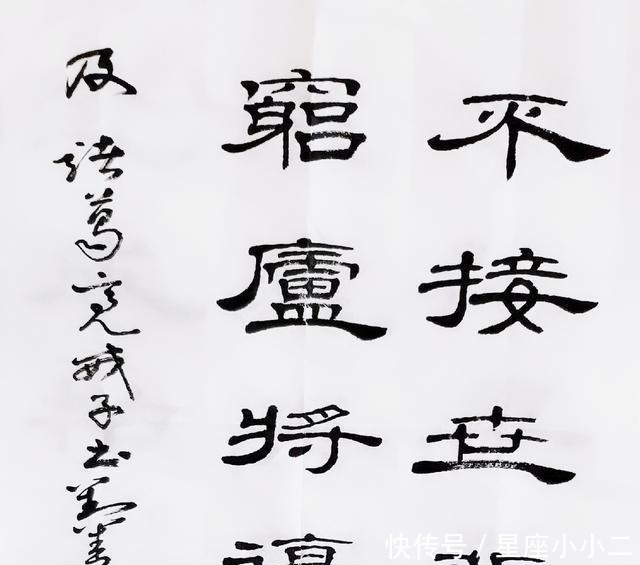 不接世
窮廬將
及 諸葛亮戒子书
快传号 / 星座小小二